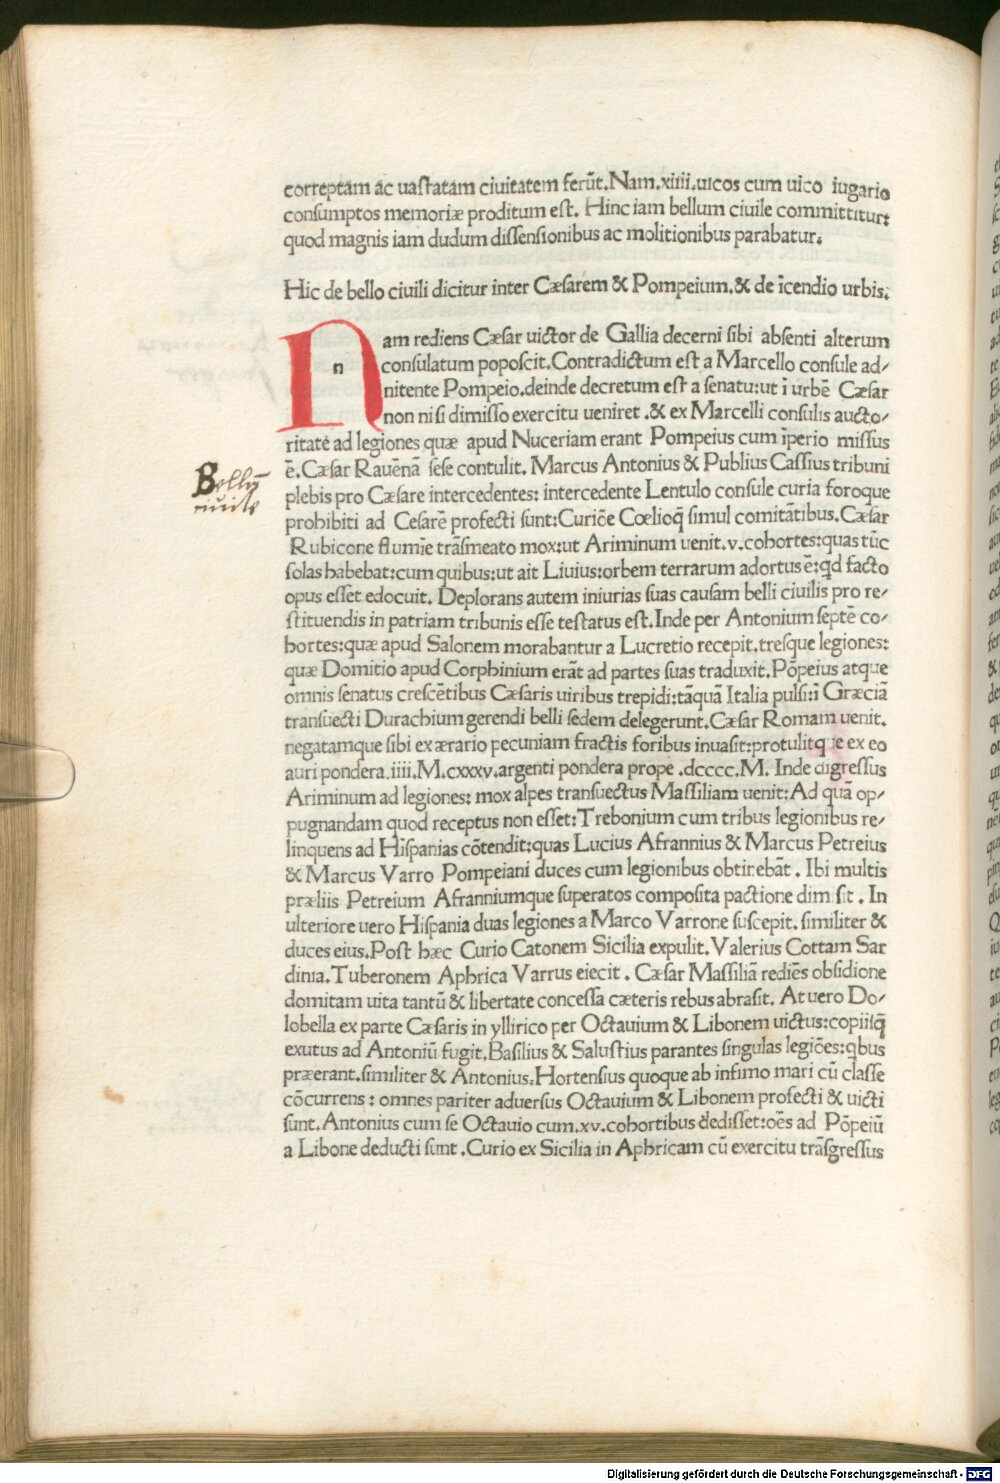 correptam ac uastatam ciuitatem ferūt. Nam .xiiii. uicos cum uico iugario
consumptos memoriæ proditum est. Hinc iam bellum ciuile committitur:
quod magnis iam dudum dissensionibus ac molitionibus parabatur.
Hic de bello ciuili dicitur inter Cæsarem & Pompeium. & de īcendio urbis.
Nam rediens Cæsar uictor de Gallia decerni sibi absenti alterum
n
consulatum poposcit. Contradictum est a Marcello consule ad-
nitente Pompeio. deinde decretum est a senatu: ut ī urbē Cæsar
non nisi dimisso exercitu ueniret. & ex Marcelli consulis aucto-
ritate ad legiones quæ apud Nuceriam erant Pompeius cum īperio missus
ē. Cæsar Rauēnā sese contulit. Marcus Antonius & Publius Cassius tribuni
Bellū
ciuile
plebis pro Cæsare intercedentes: intercedente Lentulo consule curia foroque
prohibiti ad Cesarē profecti sunt: Curiōe Cœlioq̄ simul comitātibus. Cæsar
Rubicone flumīe trāsmeato mox: ut Ariminum uenit .v. cohortes: quas tūc
solas habebat: cum quibus: ut ait Liuius: orbem terrarum adortus ē: qd facto
opus esset edocuit. Deplorans autem iniurias suas causam belli ciuilis pro re-
stituendis in patriam tribunis esse testatus est. Inde per Antonium septē co-
hortes: quæ apud Salonem morabantur a Lucretio recepit. tresque legiones:
quæ Domitio apud Corphinium erāt ad partes suas traduxit. Pōpeius atque
omnis senatus crescētibus Cæsaris uiribus trepidi: tāquā Italia pulsi: ī Græciā
transuecti Durachium gerendi belli sedem delegerunt. Cæsar Romam uenit.
negatamque sibi ex ærario pecuniam fractis foribus inuasit: protulitque ex eo
auri pondera .iiii. M. cxxxv. argenti pondera prope .dcccc. M. Inde digressus
Ariminum ad legiones: mox alpes transuectus Massiliam uenit: Ad quā op-
pugnandam quod receptus non esset: Trebonium cum tribus legionibus re-
linquens ad Hispanias cōtendit: quas Lucius Afrannius & Marcus Petreius
& Marcus Varro Pompeiani duces cum legionibus obtirebāt. Ibi multis
præliis Petreium Afranniumque superatos composita pactione dimisit. In
ulteriore uero Hispania duas legiones a Marco Varrone suscepit. similiter &
duces eius. Post hæc Curio Catonem Sicilia expulit. Valerius Cottam Sar
dinia. Tuberonem Aphrica Varrus eiecit. Cæsar Massiliā rediēs obsidione
domitam uita tantū & libertate concessa cæteris rebus abrasit. At uero Do-
lobella ex parte Cæsaris in yllirico per Octauium & Libonem uictus: copiisq̄
exutus ad Antoniū fugit. Basilius & Salustius parantes singulas legiōes: qbus
præerant. similiter & Antonius. Hortensius quoque ab infimo mari cū classe
cōcurrens: omnes pariter aduersus Octauium & Libonem profecti & uicti
sunt. Antonius cum se Octauio cum .xv. cohortibus dedisset: oēs ad Pōpeiū
a Libone deducti sunt. Curio ex Sicilia in Aphricam cū exercitu trāsgressus
Digitalisierung gefördert durch die Deutsche Forschungsgemeinschaft - DFG